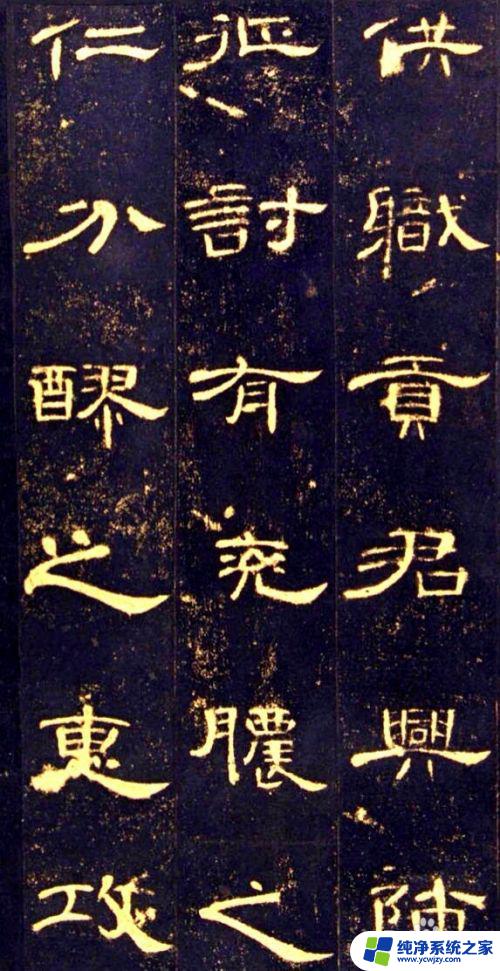 供職貢君興師
征討有兖膿之
仁分醪之惠攻
纯净系统之家
www.ycwjzy.com